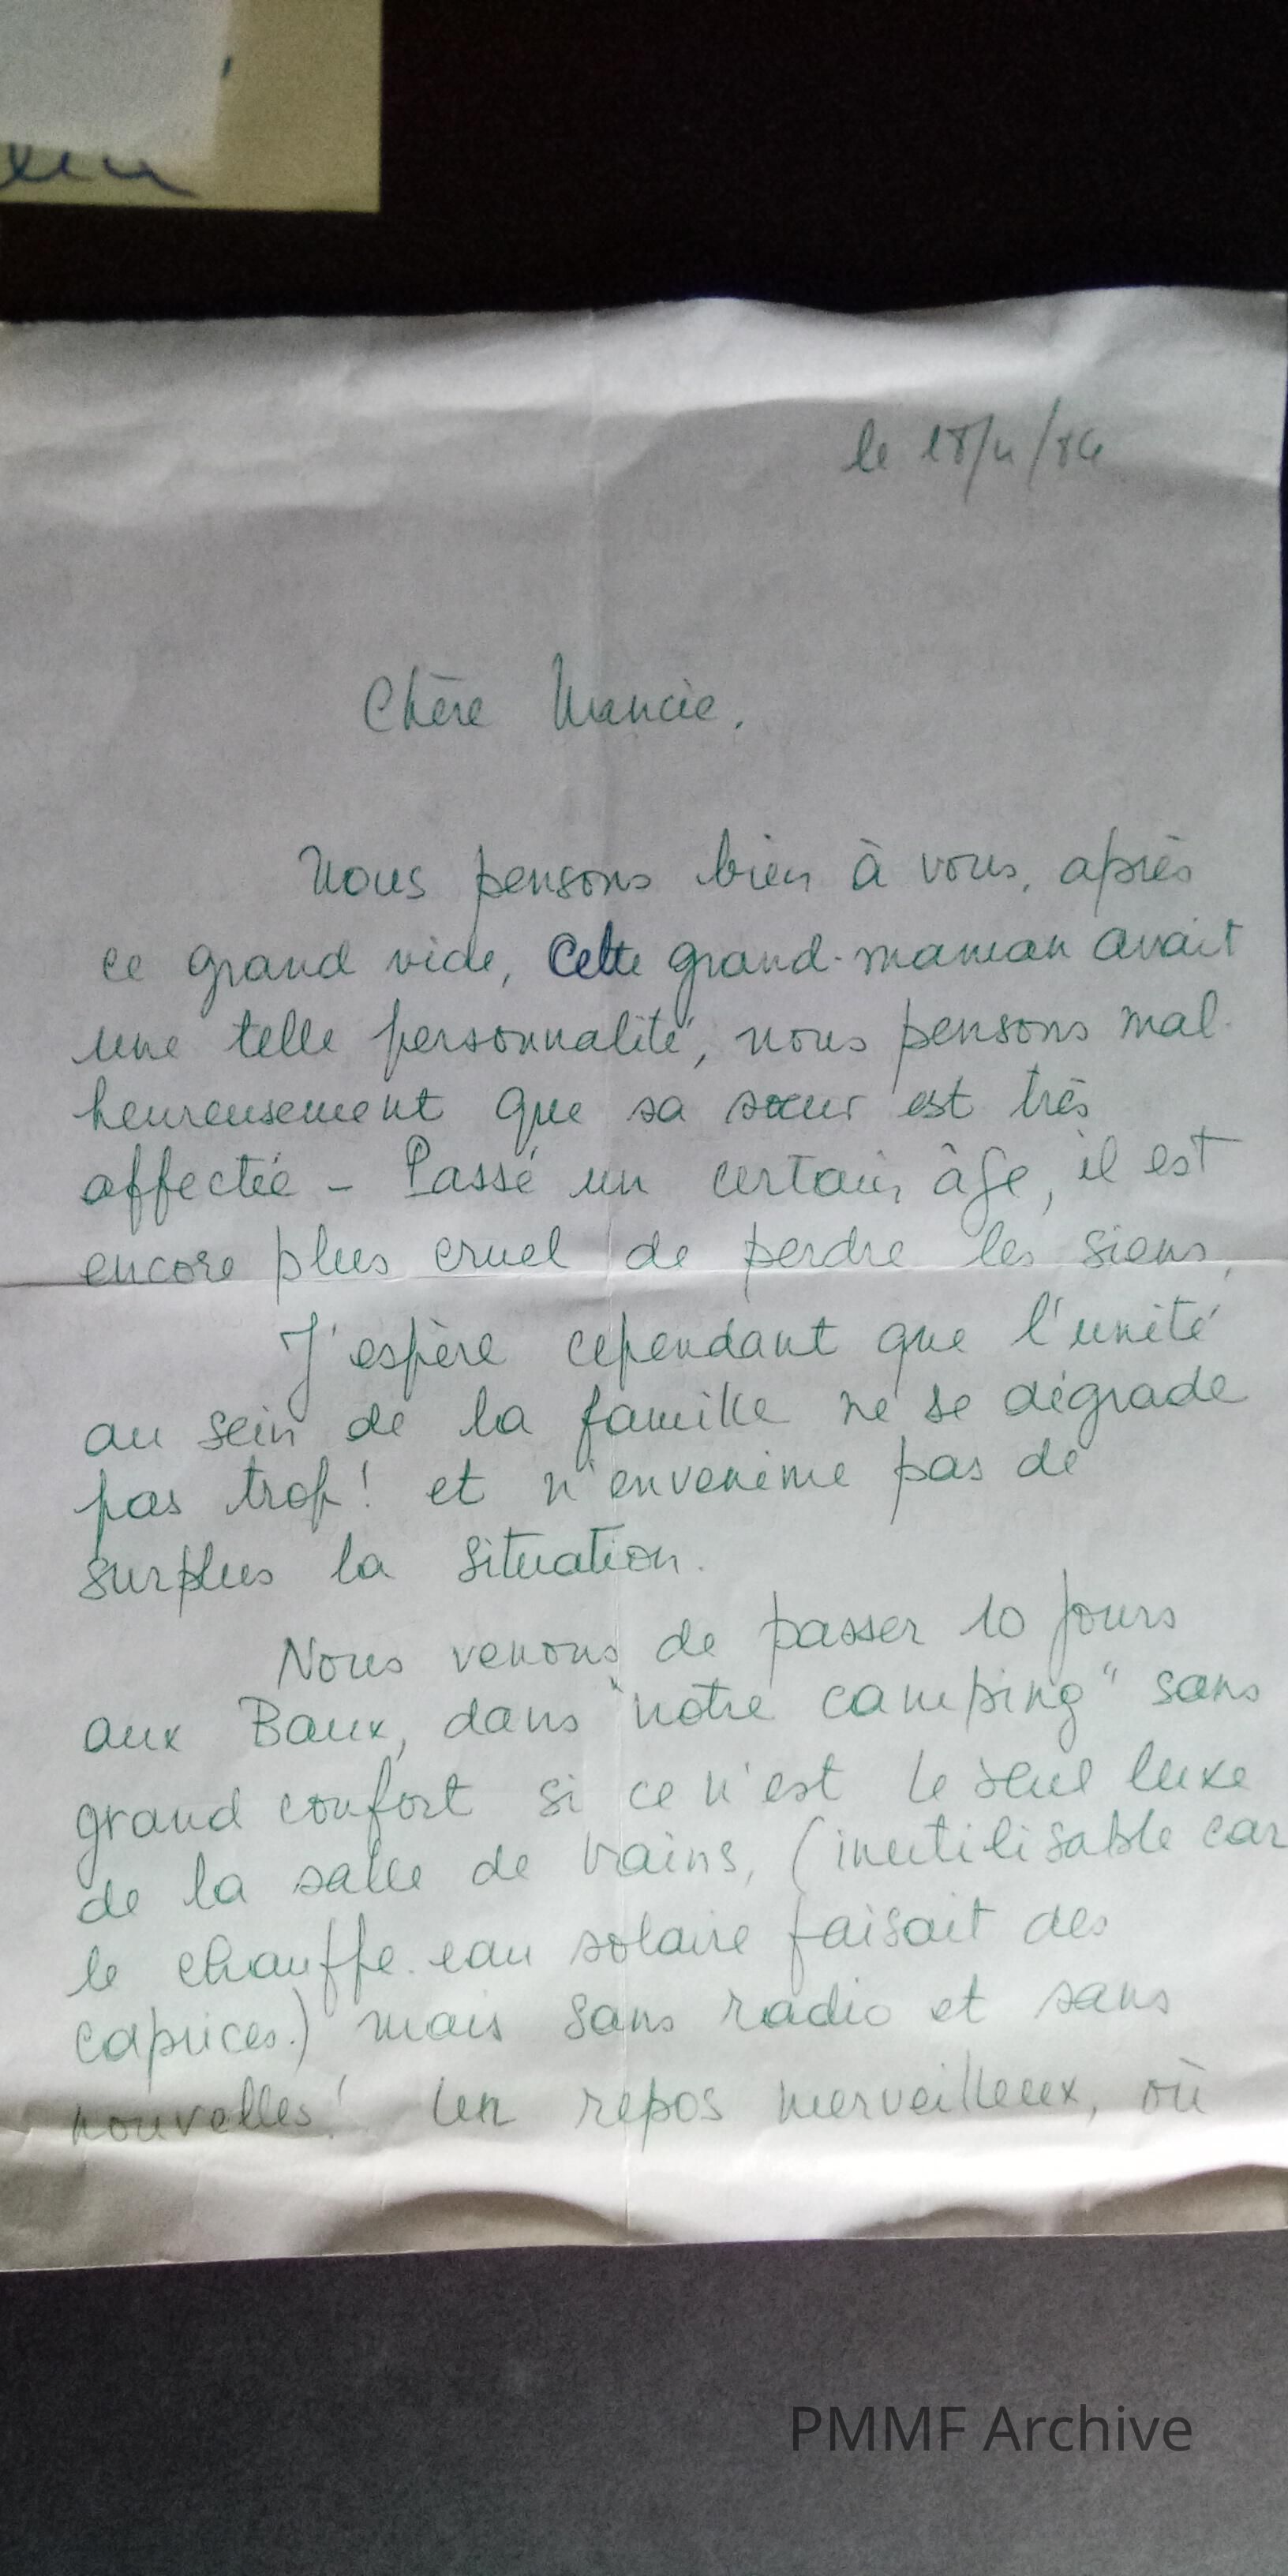 le 18/4/84
Chère Mancie,
Nous pensons bien à vous, après
ce grand vide, Cette grand-maman avait
une telle personnalité, nous pensons mal-
heureusement que sa sœur est très
affectée - Passé un certain âge, il est
encore plus cruel de perdre les siens,
J'espère cependant que l'unité
au sein de la famille ne se dégrade
pas trop! et n'envenime pas de
surplus la situation.
Nous venons de passer 10 jours
aux Baux, dans "notre camping" sans
grand confort si ce n'est le seul luxe
de la salle de bains, (inutilisable car
le chauffe-eau solaire faisait des
caprices.) mais sans radio et sans
nouvelles! Un repos merveilleux, où
PMMF Archive